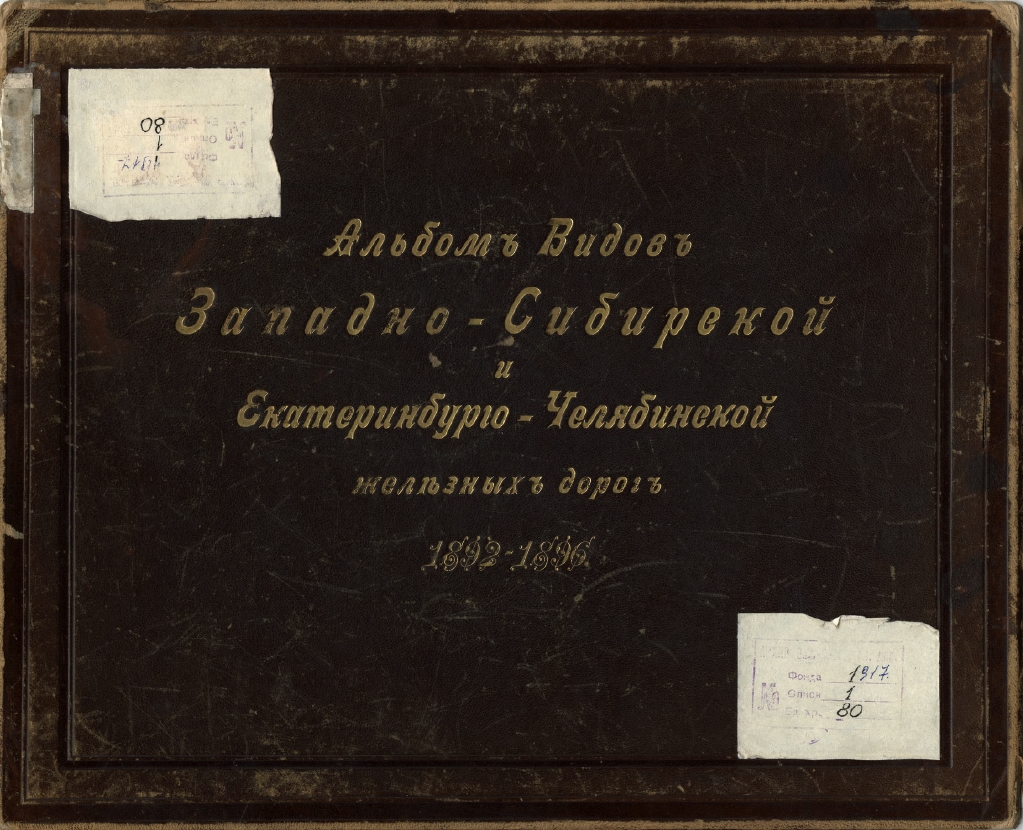 80
1
1917
Альбомъ Видовъ
Западно-Сибирской
и
Екатеринбурго-Челябинской
желѣзныхъ дорогъ
1892-1896.
Фонда 1917
Описи 1
80